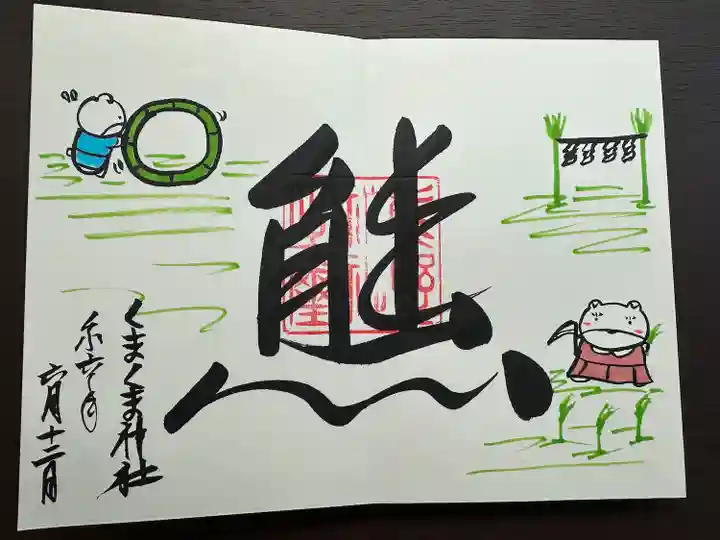 熊
くまくま神社
令六年
六月十二日